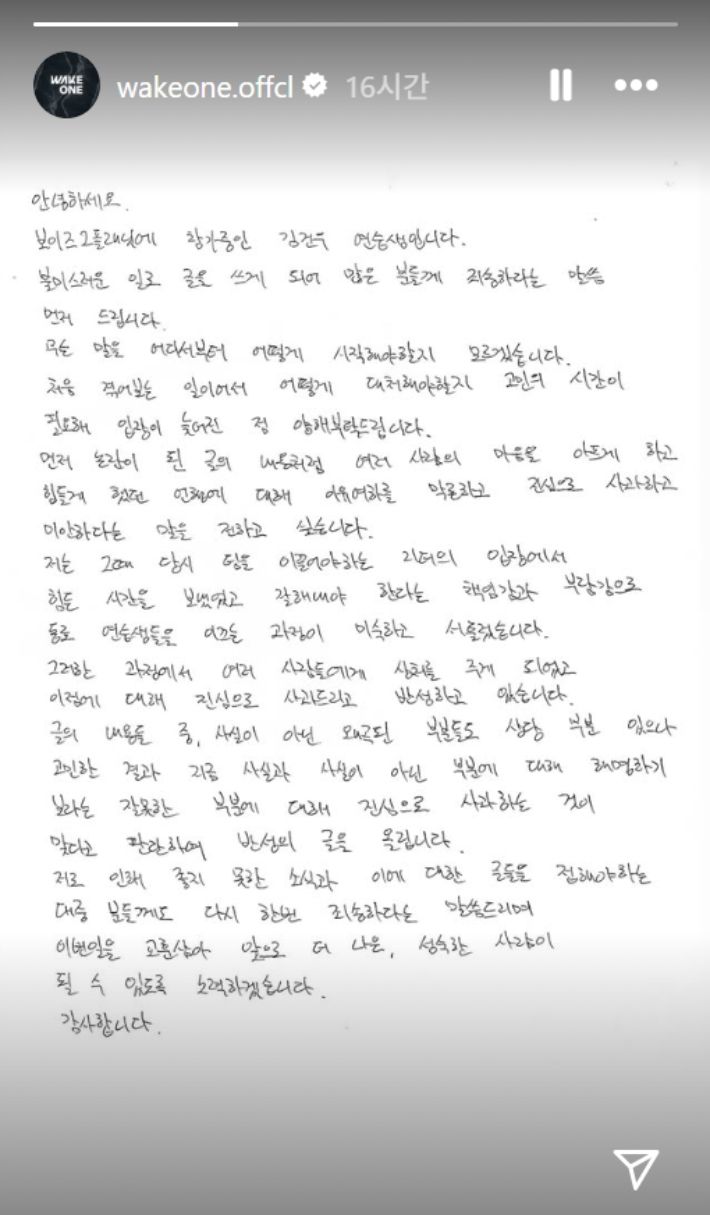 WAKE
ONE
wakeone.offcl 16시간
안녕하세요.
보이즈2플래닛에 참가중인 김건우 연습생입니다.
불미스러운 일로 글을 쓰게 되어 많은 분들께 죄송하다는 말씀
먼저 드립니다.
무슨 말을 어디서부터 어떻게 시작해야할지 모르겠습니다.
처음 겪어보는 일이어서 어떻게 대처해야할지 고민의 시간이
필요해 입장이 늦어진 점 양해부탁드립니다.
먼저 논란이 된 글의 내용처럼 여러 사람의 마음을 아프게 하고
힘들게 했던 언행에 대해 이유여하를 막론하고 진심으로 사과하고
미안하다는 말을 전하고 싶습니다.
저는 그때 당시 팀을 이끌어야하는 리더의 입장에서
힘든 시간을 보냈었고 잘해내야 한다는 책임감과 부담감으로
동료 연습생들을 이끄는 과정이 미숙하고 서툴렀습니다.
그러한 과정에서 여러 사람들에게 상처를 주게 되었고
이점에 대해 진심으로 사과드리고 반성하고 있습니다.
글의 내용들 중, 사실이 아닌 왜곡된 부분들도 상당 부분 있으나
고민한 결과 지금 사실과 사실이 아닌 부분에 대해 해명하기
보다는 잘못한 부분에 대해 진심으로 사과하는 것이
맞다고 판단하여 반성의 글을 올립니다.
저로 인해 좋지 못한 소식과 이에 대한 글들을 접해야하는
대중 분들께도 다시 한번 죄송하다는 말씀드리며
이번일을 교훈삼아 앞으로 더 나은, 성숙한 사람이
될 수 있도록 노력하겠습니다.
감사합니다.